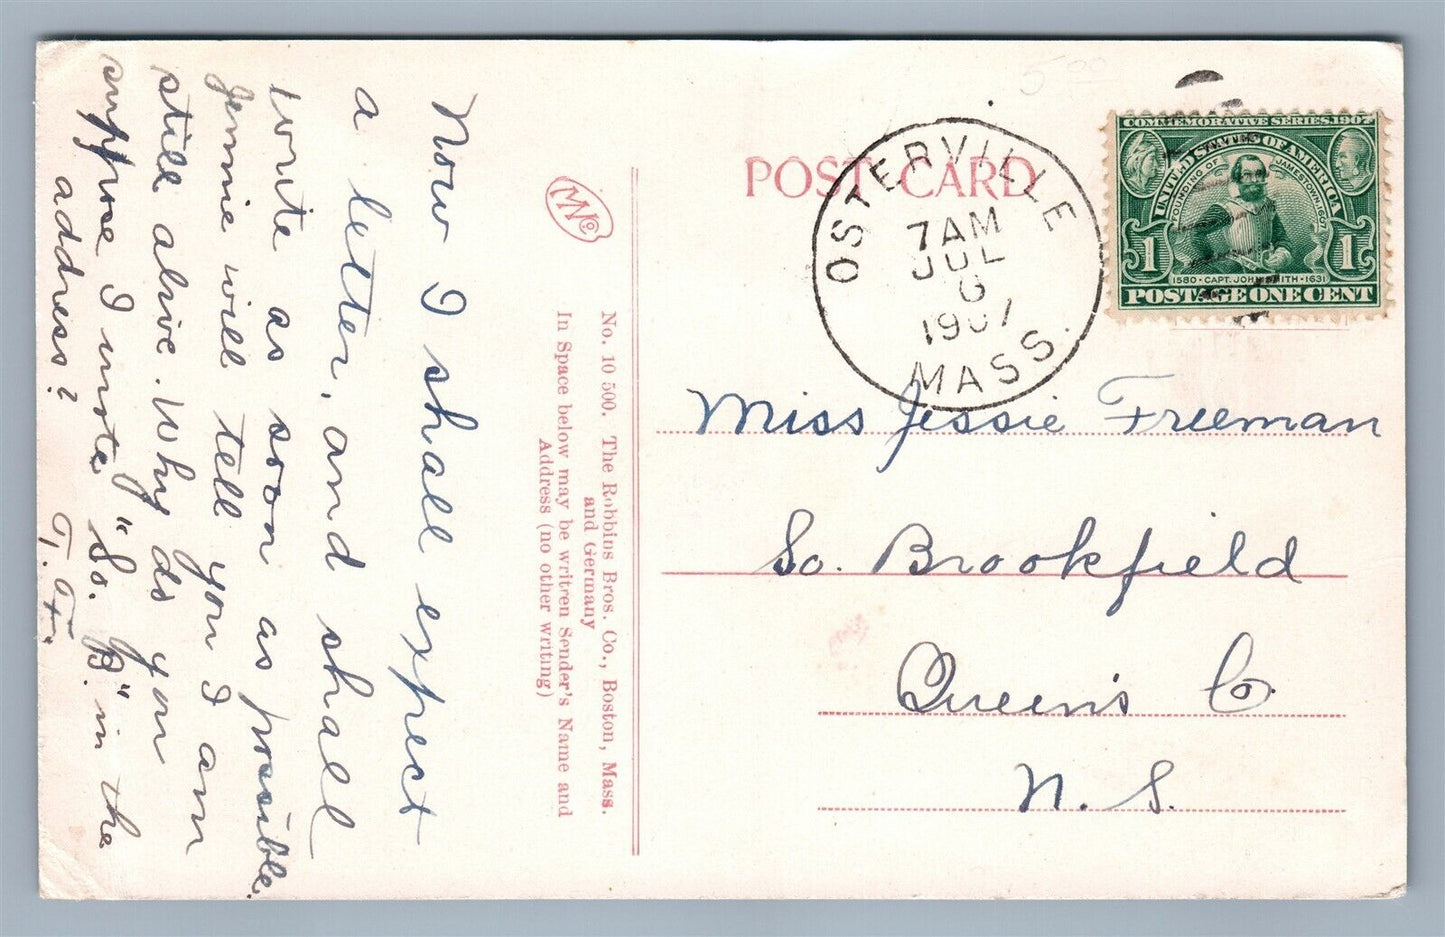 Now I shall expect
a letter, and shall
write as soon as possible.
Jennie will tell you I am
still alive. Why do you
suppose I wrote "So. B." in the
address?
T. F.
MNCo.
No. 10 500. The Robbins Bros. Co., Boston, Mass.
and Germany
In Space below may be written Sender's Name and
Address (no other writing)
POST CARD
OSTERVILLE
7 AM
JUL
6
1907
MASS.
COMMEMORATIVE SERIES, 1907
UNITED STATES OF AMERICA
FOUNDING OF JAMESTOWN, 1607
1 1
1580 · CAPT. JOHN SMITH · 1631
POSTAGE ONE CENT
5.00
Miss Jessie Freeman
So. Brookfield
Queen's Co.
N. S.